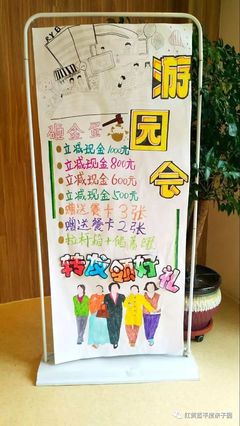 RYB
游园会
砸金蛋
立减现金1000元
立减现金800元
立减现金600元
立减现金500元
赠送餐卡3张
赠送餐卡2张
转发领好礼